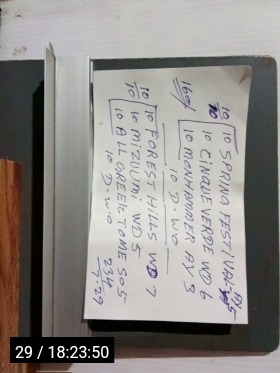 10 SPRING FESTIVAL
10 CINQUE VERDE WD 6
10 MONHAMMER AY 3
10 D-WO
10 FOREST HILLS WD 7
10 MIZUUMI WD 5
10 ALL GREEK TO ME SO5
10 D-WO
234
29 / 18:23:50